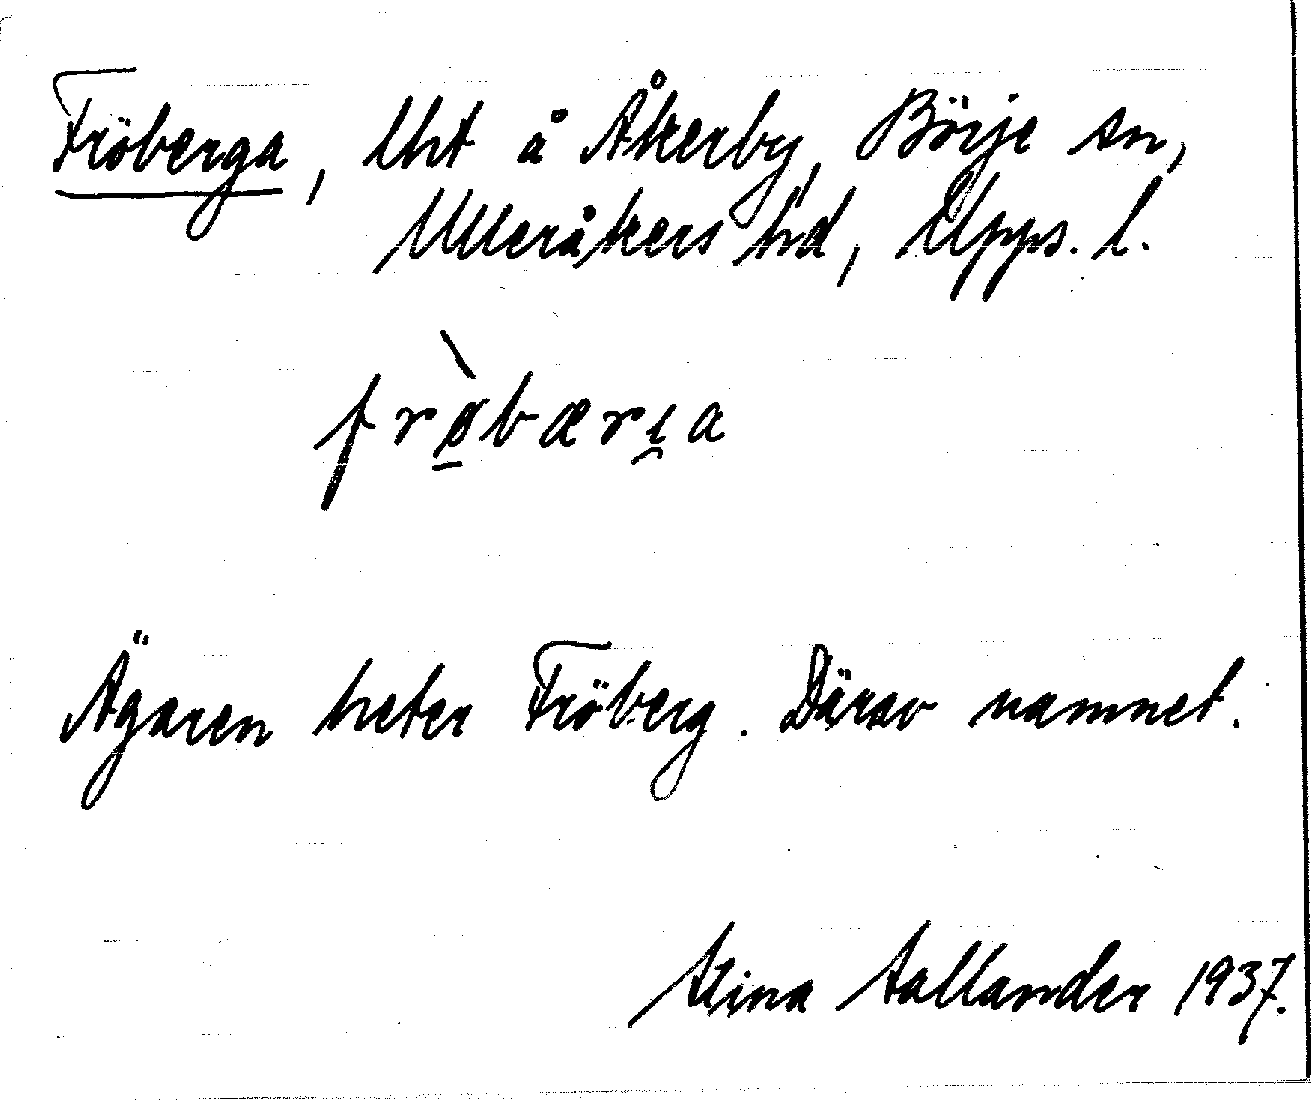 Fröberga, lht å Åkerby, Börje sn,
Ulleråkers hd, Upps. l.
frø̀bærɩa
Ägaren heter Fröberg. Därav namnet.
Stina Hallander 1937.